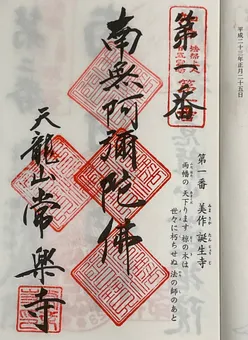 平成二十三年正月二十五日
第一番
第一番　美作　誕生寺
両幡の　天下ります　椋の木は
世々に朽ちせぬ　法の師のあと
南無阿彌陀佛
天龍山常樂寺